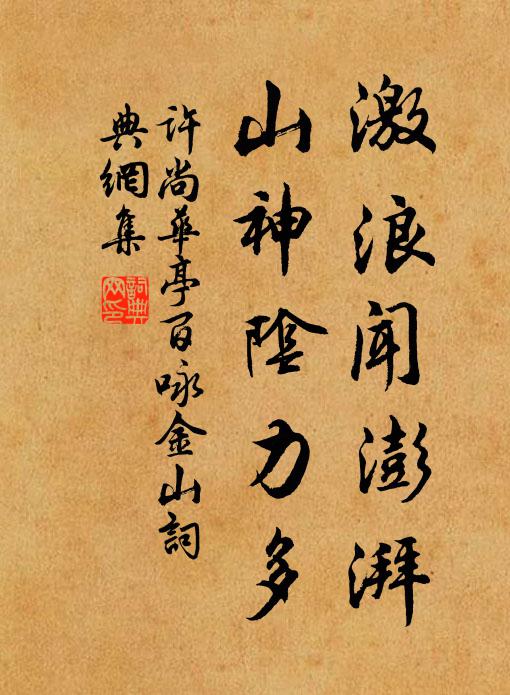 激浪聞澎湃
山神陰力多
許尚華亭百咏金山詞
典網集
詞典網印